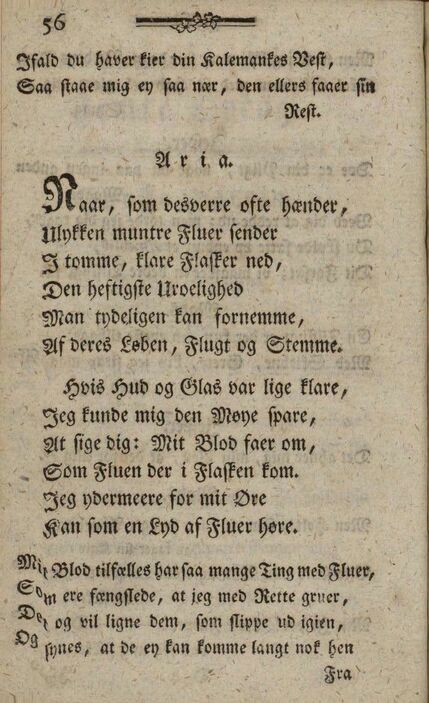 56
Ifald du haver kier din Kalemankes Vest,
Saa staae mig ey saa nær, den ellers faaer sin
Rest.
Aria.
Naar, som desverre ofte hænder,
Ulykken muntre Fluer sender
I tomme, klare Flasker ned,
Den heftigste Uroelighed
Man tydeligen kan fornemme,
Af deres Løben, Flugt og Stemme.
Hvis Hud og Glas var lige klare,
Jeg kunde mig den Møye spare,
At sige dig: Mit Blod faer om,
Som Fluen der i Flasken kom.
Jeg ydermeere for mit Øre
Kan som en Lyd af Fluer høre.
Mit Blod tilfælles har saa mange Ting med Fluer,
Som ere fængslede, at jeg med Rette gruer,
Det og vil ligne dem, som slippe ud igien,
Og synes, at de ey kan komme langt nok hen
Fra